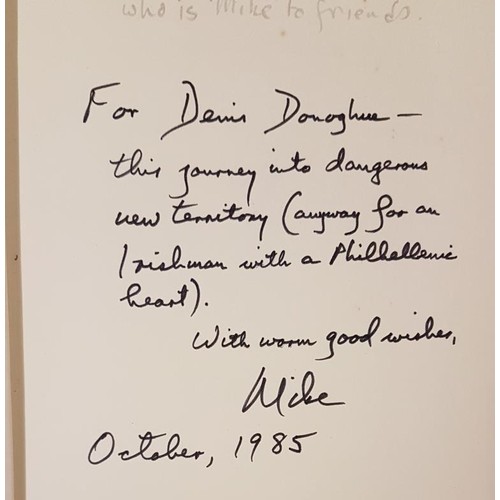 who is Mike to friends.
For Denis Donoghue —
this journey into dangerous
new territory (anyway for an
Irishman with a Philhellenic
heart).
With warm good wishes,
Mike
October, 1985